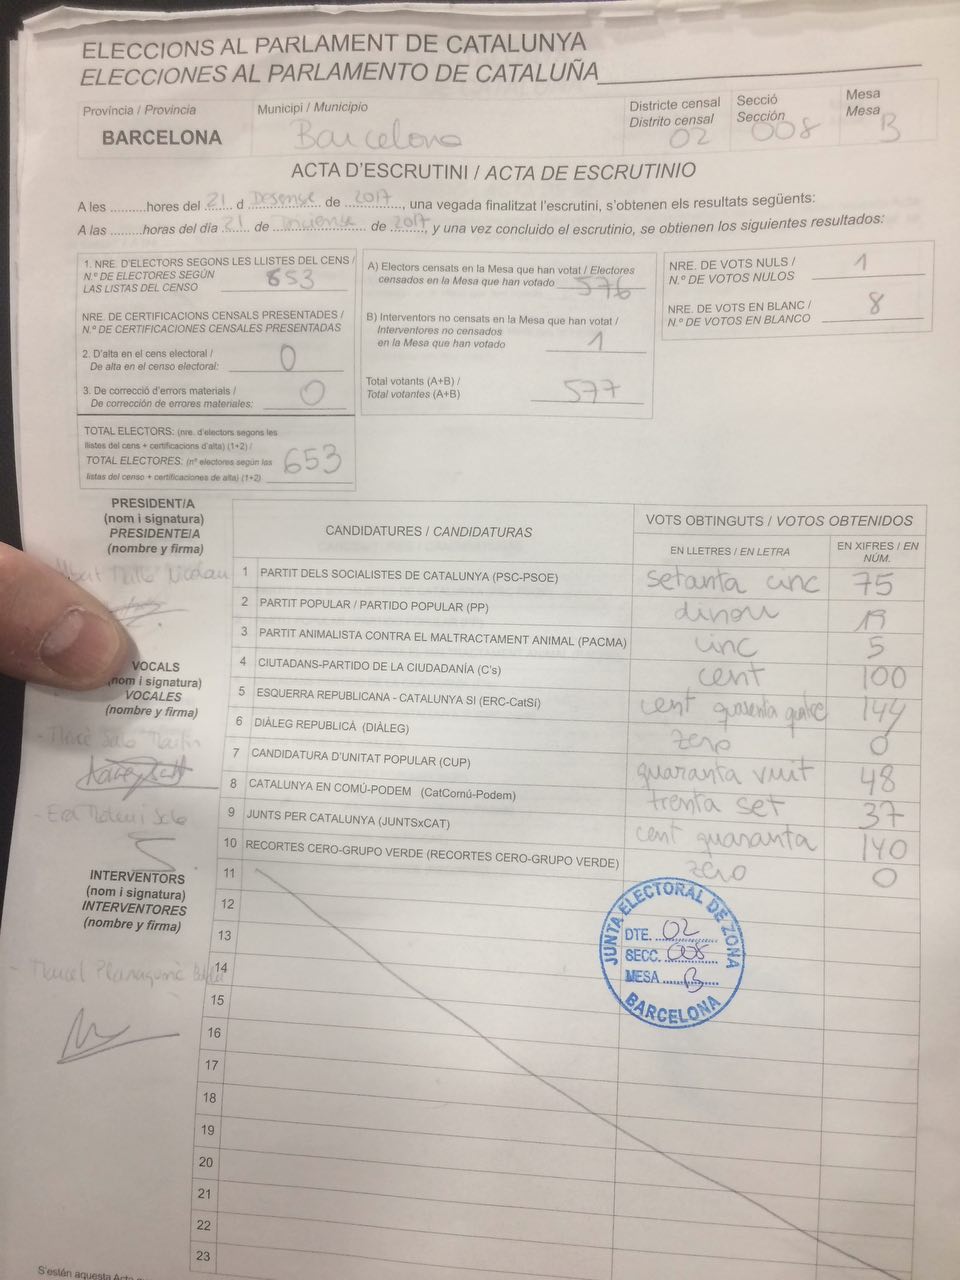 ELECCIONS AL PARLAMENT DE CATALUNYA
ELECCIONES AL PARLAMENTO DE CATALUÑA
Província / Provincia
BARCELONA
Municipi / Municipio
Barcelona
Districte censal
Distrito censal
02
Secció
Sección
008
Mesa
Mesa
B
ACTA D'ESCRUTINI / ACTA DE ESCRUTINIO
A les ..........hores del 21 d Desense de 2017, una vegada finalitzat l'escrutini, s'obtenen els resultats següents:
A las ..........horas del día 21 de de 2017, y una vez concluido el escrutinio, se obtienen los siguientes resultados:
1. NRE. D'ELECTORS SEGONS LES LLISTES DEL CENS /
N.º DE ELECTORES SEGÚN
LAS LISTAS DEL CENSO
653
NRE. DE CERTIFICACIONS CENSALS PRESENTADES /
N.º DE CERTIFICACIONES CENSALES PRESENTADAS
2. D'alta en el cens electoral /
De alta en el censo electoral:
0
3. De correcció d'errors materials /
De corrección de errores materiales:
0
TOTAL ELECTORS: (nre. d'electors segons les
llistes del cens + certificacions d'alta) (1+2) /
TOTAL ELECTORES: (nº electores según las
listas del censo + certificaciones de alta) (1+2)
653
A) Electors censats en la Mesa que han votat / Electores
censados en la Mesa que han votado
576
B) Interventors no censats en la Mesa que han votat /
Interventores no censados
en la Mesa que han votado
1
Total votants (A+B) /
Total votantes (A+B)
577
NRE. DE VOTS NULS /
N.º DE VOTOS NULOS
1
NRE. DE VOTS EN BLANC /
N.º DE VOTOS EN BLANCO
8
PRESIDENT/A
(nom i signatura)
PRESIDENTE/A
(nombre y firma)
VOCALS
(nom i signatura)
VOCALES
(nombre y firma)
INTERVENTORS
(nom i signatura)
INTERVENTORES
(nombre y firma)
Marcel
CANDIDATURES / CANDIDATURAS
VOTS OBTINGUTS / VOTOS OBTENIDOS
EN LLETRES / EN LETRA
EN XIFRES / EN NÚM.
1 PARTIT DELS SOCIALISTES DE CATALUNYA (PSC-PSOE) setanta cinc 75
2 PARTIT POPULAR / PARTIDO POPULAR (PP) dinou 19
3 PARTIT ANIMALISTA CONTRA EL MALTRACTAMENT ANIMAL (PACMA) cinc 5
4 CIUTADANS-PARTIDO DE LA CIUDADANÍA (C's) cent 100
5 ESQUERRA REPUBLICANA - CATALUNYA SÍ (ERC-CatSí) cent quaranta quatre 144
6 DIÀLEG REPUBLICÀ (DIÀLEG) zero 0
7 CANDIDATURA D'UNITAT POPULAR (CUP) quaranta vuit 48
8 CATALUNYA EN COMÚ-PODEM (CatComú-Podem) trenta set 37
9 JUNTS PER CATALUNYA (JUNTSxCAT) cent quaranta 140
10 RECORTES CERO-GRUPO VERDE (RECORTES CERO-GRUPO VERDE) zero 0
11
12
13
14
15
16
17
18
19
20
21
22
23
JUNTA ELECTORAL DE ZONA
DTE. 02
SECC. 008
MESA B
BARCELONA
S'estén aquesta Acta